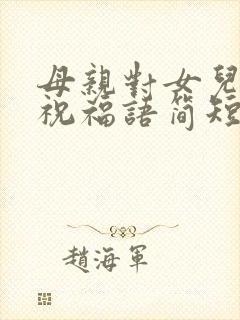 母親對女兒
祝福語简短
趙海軍